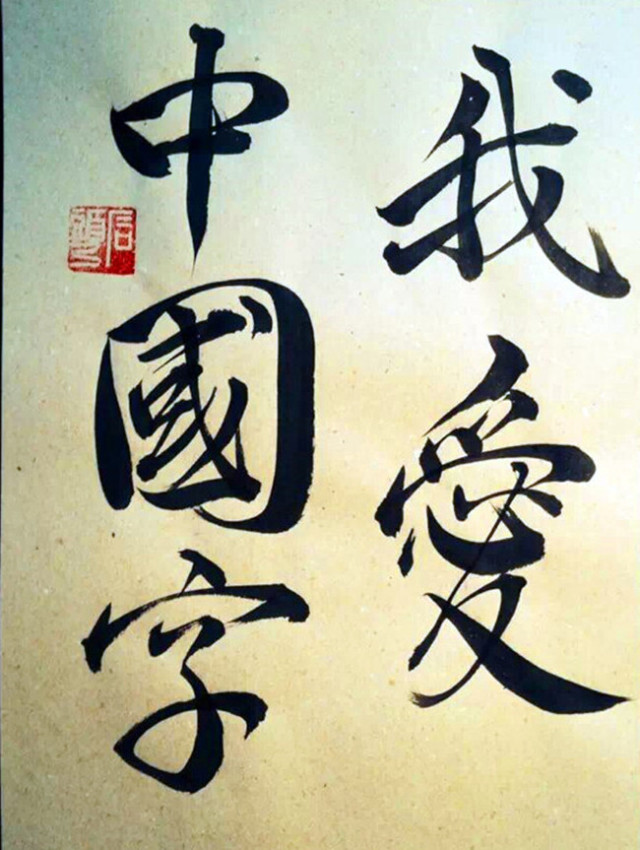 我愛
中國字